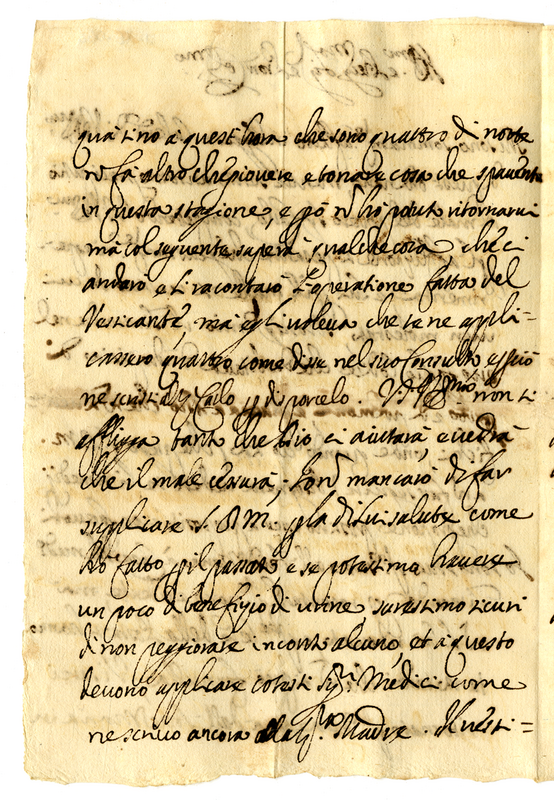 qua sino a quest'hora che sono quattro di notte
nō fa altro che piovere e tonare cosa che spaventa
in questa stagione, e p̄ō nō hò potuto ritornarvi
mà col seguente saperà qualche cosa, che ci
andarò e ti racontarò l'operatione fatta del
Vesicante, mà egli voleva che se ne appli=
cassero quattro come disse nel suo Consulto
ne scrissi di porcelo. non ti
affligga tanto che Dio ci aiutarà, e vedrà
che il male cesserà, Io nō mancarò di far
supplicare S. D. M. p la di lui salute come
hò fatto p il passato, e se potessimo havere
un poco di benefizio di urine, saressimo sicuri
di non peggiorare in conto alcuno, et a questo
devono applicare cotesti Sig.ri Medici come
ne scrivo ancora alla Sig.ra Madre.